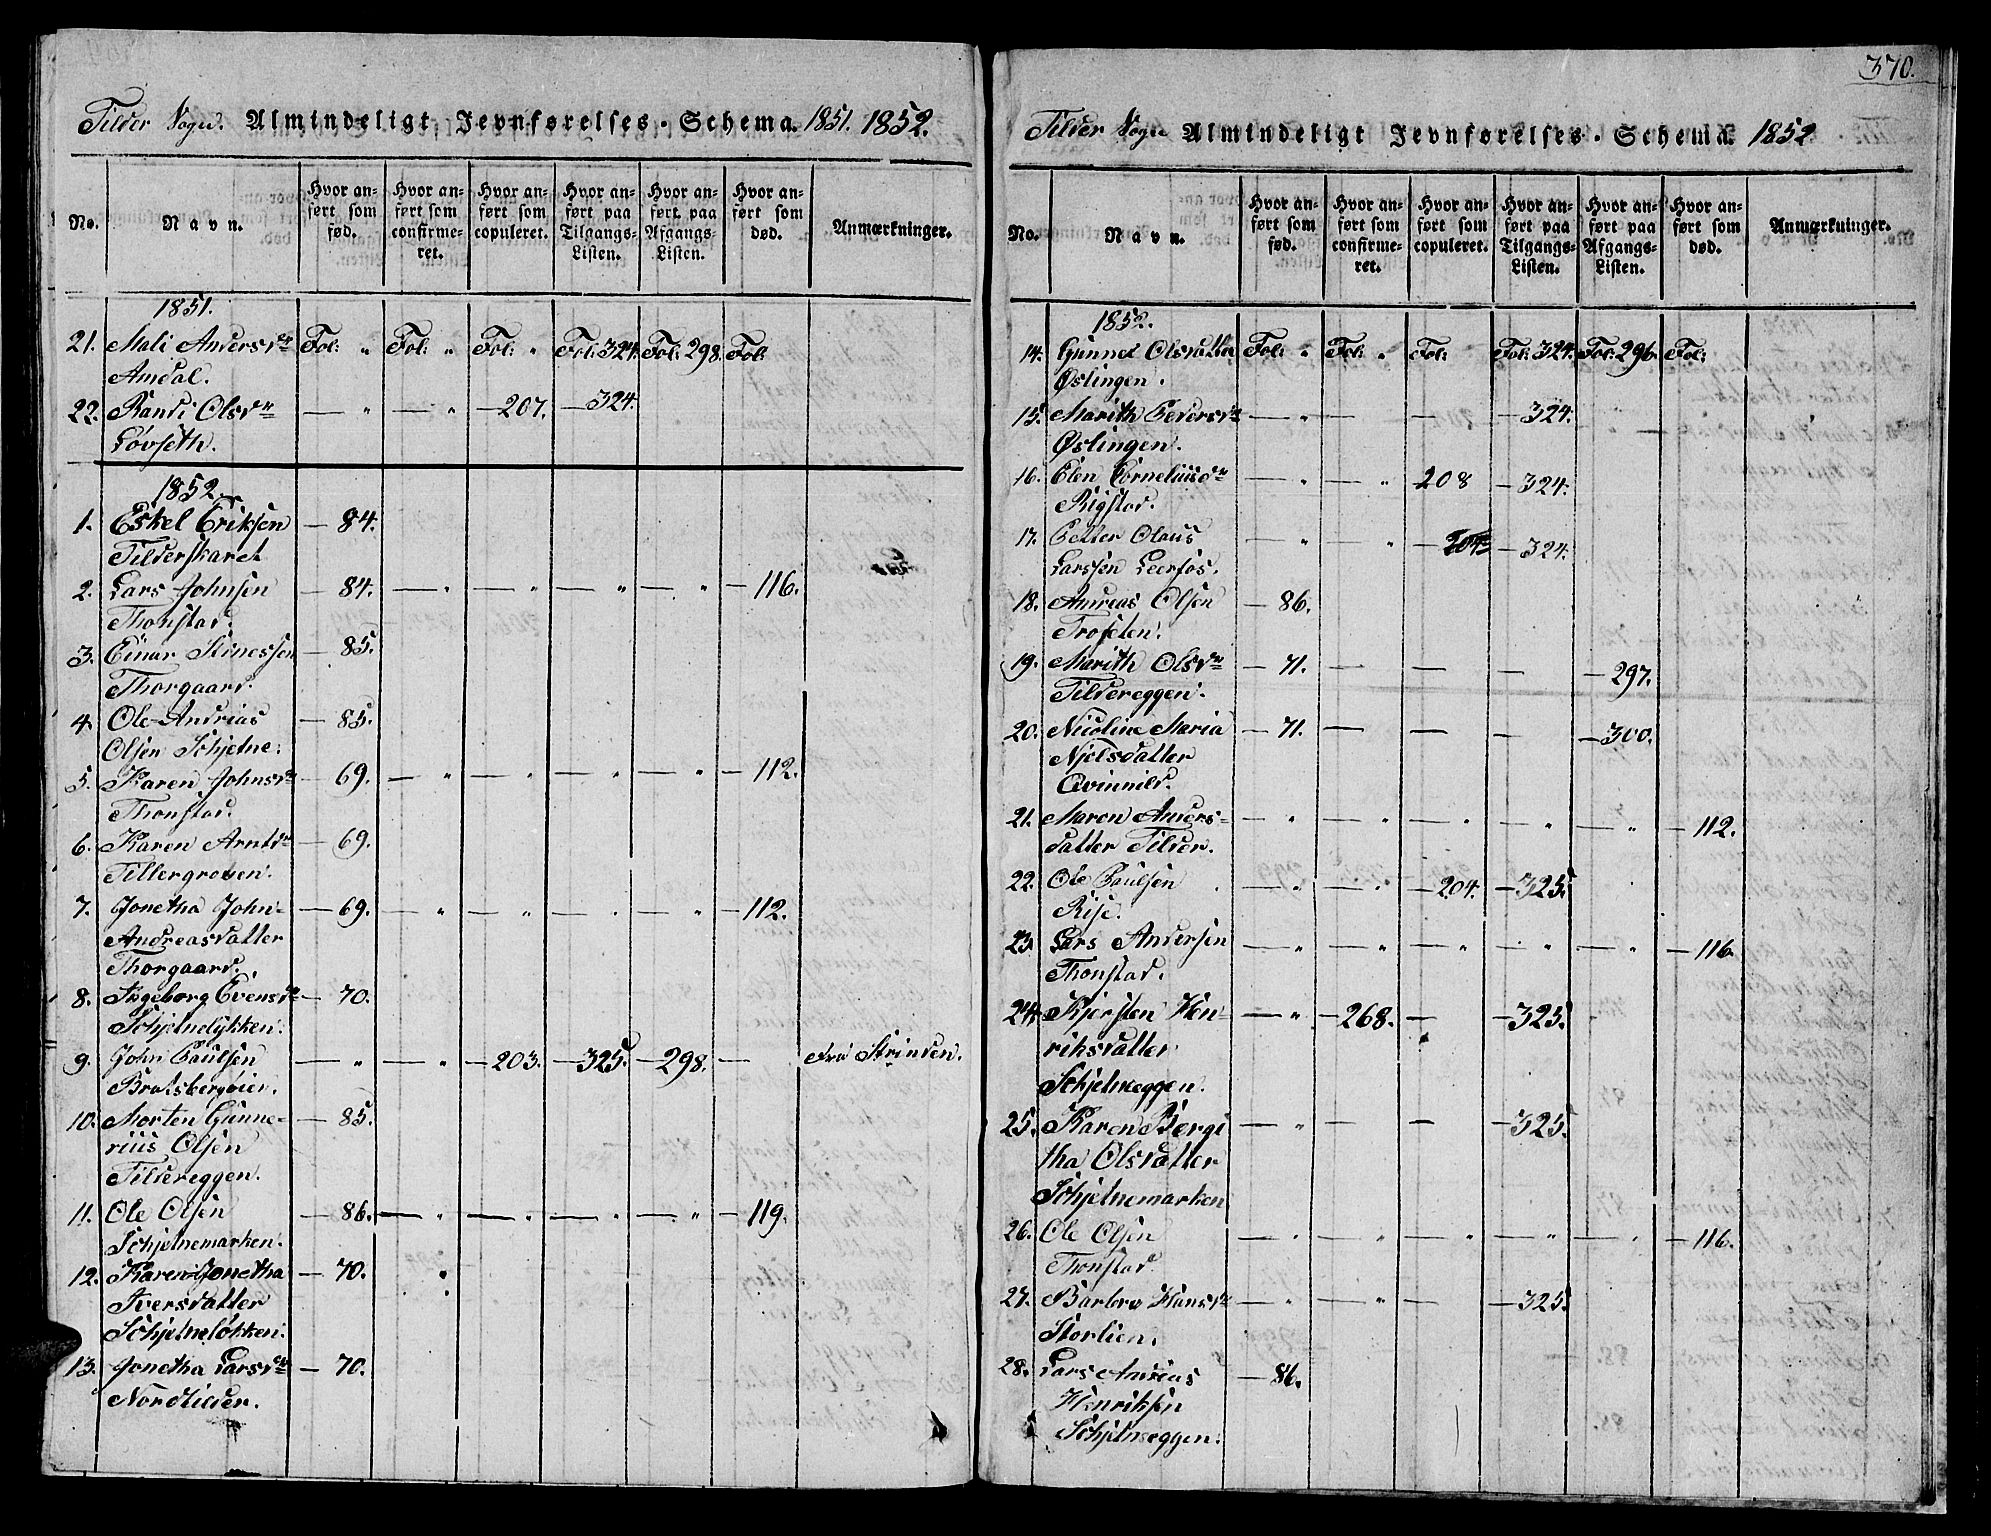 370.
Tilder Sogn. Almindeligt Jevnførelses-Schema. 1851. 1852.
No. Navn. Hvor anført som fød. Hvor anført som confirmeret. Hvor anført som copuleret. Hvor anført paa Tilgangs-Listen. Hvor anført paa Afgangs-Listen. Hvor anført som død. Anmærkninger.
1851.
21. Mali Andersdr Fol: " Fol: " Fol: " Fol: 324. Fol: 298. Fol:
Amdal.
22. Randi Olsdr — " — " — 207. — 324.
Løvseth.
1852.
1. Eskel Eriksen — 84.
Tilderskaret
2. Lars Johnsen — 84. — " — " — " — " — 116.
Thonstad.
3. Einar Stinessen — 85.
Thorgaard.
4. Ole Andrias — 85.
Olsen Schjelne.
5. Karen Johnsdr — 69. — " — " — " — " — 112.
Thonstad.
6. Karen Arntdr — 69.
Tillergroven.
7. Jonetha John- — 69. — " — " — " — " — 112.
Andreasdatter
Thorgaard.
8. Ingeborg Evensdr — 70.
Schjelneløkken.
9. John Paulsen — " — " — 203. — 325. — 298. — Fra Strinden.
Bratsbergveier.
10. Morten Gunne- — 85.
rius Olsen
Tildereggen.
11. Ole Olsen — 86. — " — " — " — " — 119.
Schjelnemarken.
12. Karen Jonetha — 70. "
Iversdatter
Schjelneløkken.
13. Jonetha Larsdr — 70.
Nordtilder.
Tilder Sogn Almindeligt Jevnførelses-Schema. 1852.
No. Navn. Hvor anført som fød. Hvor anført som confirmeret. Hvor anført som copuleret. Hvor anført paa Tilgangs-Listen. Hvor anført paa Afgangs-Listen. Hvor anført som død. Anmærkninger.
1852.
14. Gunnel Olsdatter Fol: " Fol: " Fol: Fol: 324. Fol: 296. Fol:
Østingen.
15. Marith Pedersdr — " — " — — 324.
Østingen.
16. Elen Corneliusdr — " — " — 208 — 324.
Rigstad.
17. Petter Olaus — " — " — 204 — 324.
Larssen Leerfos.
18. Andreas Olsen — 86.
Troseten.
19. Marith Olsdr — 71. — — — — 297.
Tildereggen.
20. Nicoline Maria — 71. — — — — 300.
Njelsdatter
Qvinnild.
21. Maren Anders- — " — " — " — " — " — 112.
datter Tilder.
22. Ole Paulsen — " — " — 204. — 325.
Rise.
23. Lars Andersen — " — " — " — " — " — 116.
Thonstad.
24. Kjersten Hen- — " — 268. — — 325.
riksdatter
Schjelneeggen.
25. Karen Bergi — " — — — 325.
tha Olsdatter
Schjelnemarken
26. Ole Olsen — " — " — " — " — " — 116.
Thonstad.
27. Barbro Hansdr — " — " — — 325.
Storlien.
28. Lars Andrias — 86.
Henriksen
Schjelneeggen.